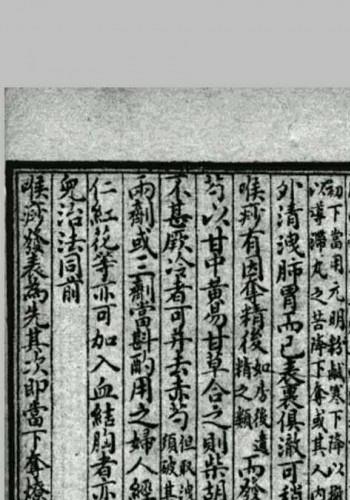 初下當用元明粉鹹寒下降以
以導滯丸之苦降下奪或其人內
外清洩肺胃而已表裏俱澈可消
喉痧有因奪精後如房後遺精之類而發
芍以甘中黃易甘草合之則柴胡
不甚厥冷者可并去赤芍但取洩須破其
兩劑或三劑當斟酌用之婦人經
仁紅花等亦可加入血結胸者亦
兒治法同前
喉痧發表為先其次即當下奪燎